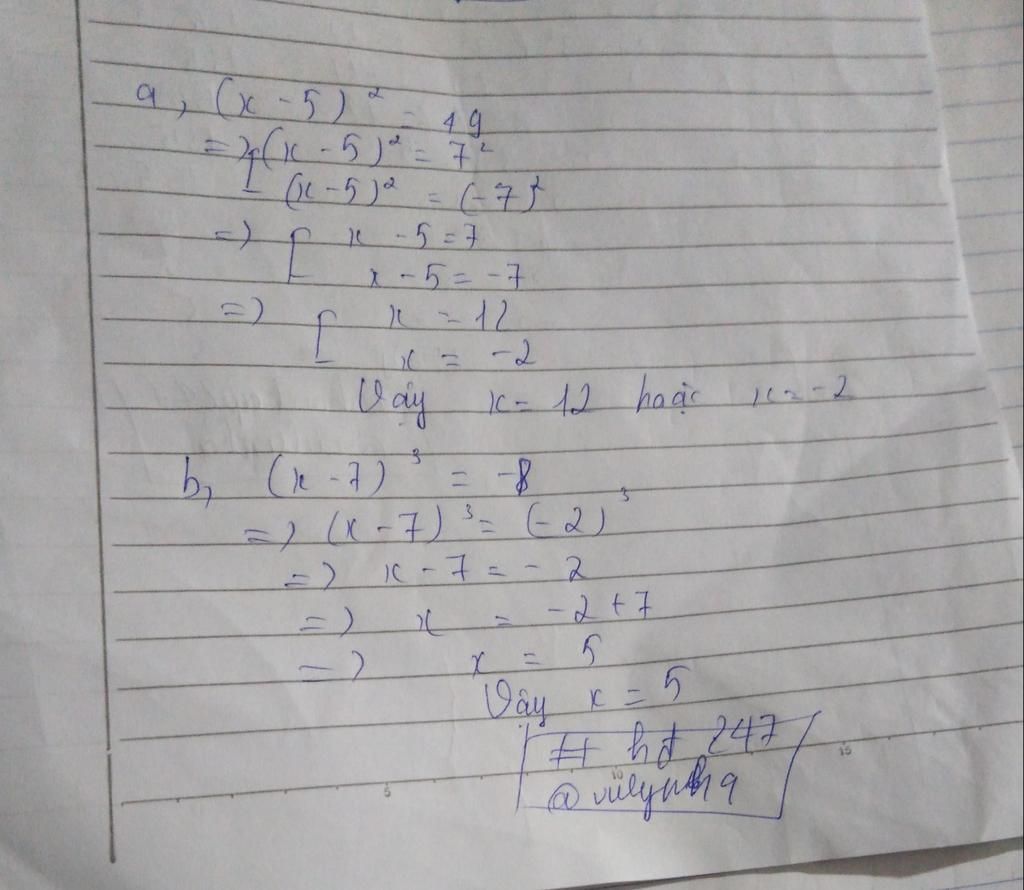 a, (x - 5)² = 49
=> [ (x - 5)² = 7²
(x - 5)² = (-7)²
=> [ x - 5 = 7
x - 5 = -7
=> [ x = 12
x = -2
Vậy x = 12 hoặc x = -2
b, (x - 7)³ = -8
=> (x - 7)³ = (-2)³
=> x - 7 = - 2
=> x = -2 + 7
=> x = 5
Vậy x = 5
# hđ 247
5 10 15